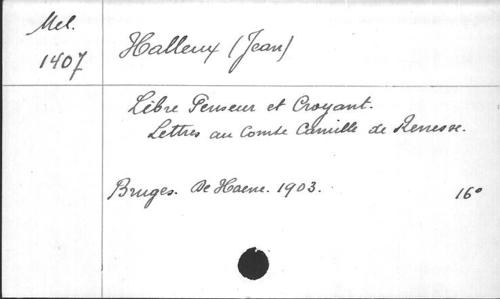 Mel.
1407
Halleux (Jean)
Libre Penseur et Croyant.
Lettres au Comte Camille de Renesse.
Bruges. De Haene. 1903. 16°